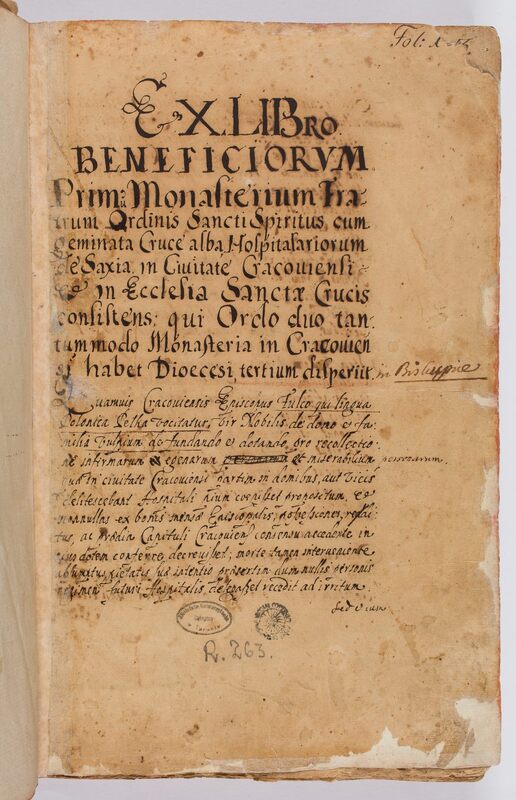 Fol: 1
EX LIBro
BENEFICIORVM
Prim: Monasterium Fra-
trum Ordinis Sancti Spiritus, cum
Geminata Cruce alba Hospitalariorum
de Saxia, in Ciuitate Cracouiensi
in Ecclesia Sanctæ Crucis
consistens: qui Ordo duo tan-
tummodo Monasteria in Cracouien
habet Dioecesi tertium disperiit in Bisluppie
Quamuis Cracouiensis Episcopus Fulco qui lingua
Polonica Pelka vocitatur, Vir Nobilis de domo & fa-
milia Vulpium de fundando & dotando, pro recollectio-
ne infirmarum & egenarum et miserabilium personarum.
quæ in ciuitate Cracouiensi partim in domibus, aut vicis
delitescebant Hospitali pium propositum, &
nonnullas ex bonis mensæ Episcopalis, possessiones, reddi-
tus, ac prædia Capituli Cracouien: consensu accedente in
dotem conferre decreuisset, morte tamen interueniente
intentio præsertim dum nullis personis
regimen futuri Hospitalis, recidit ad irritum.
Sed eium
R. 263.